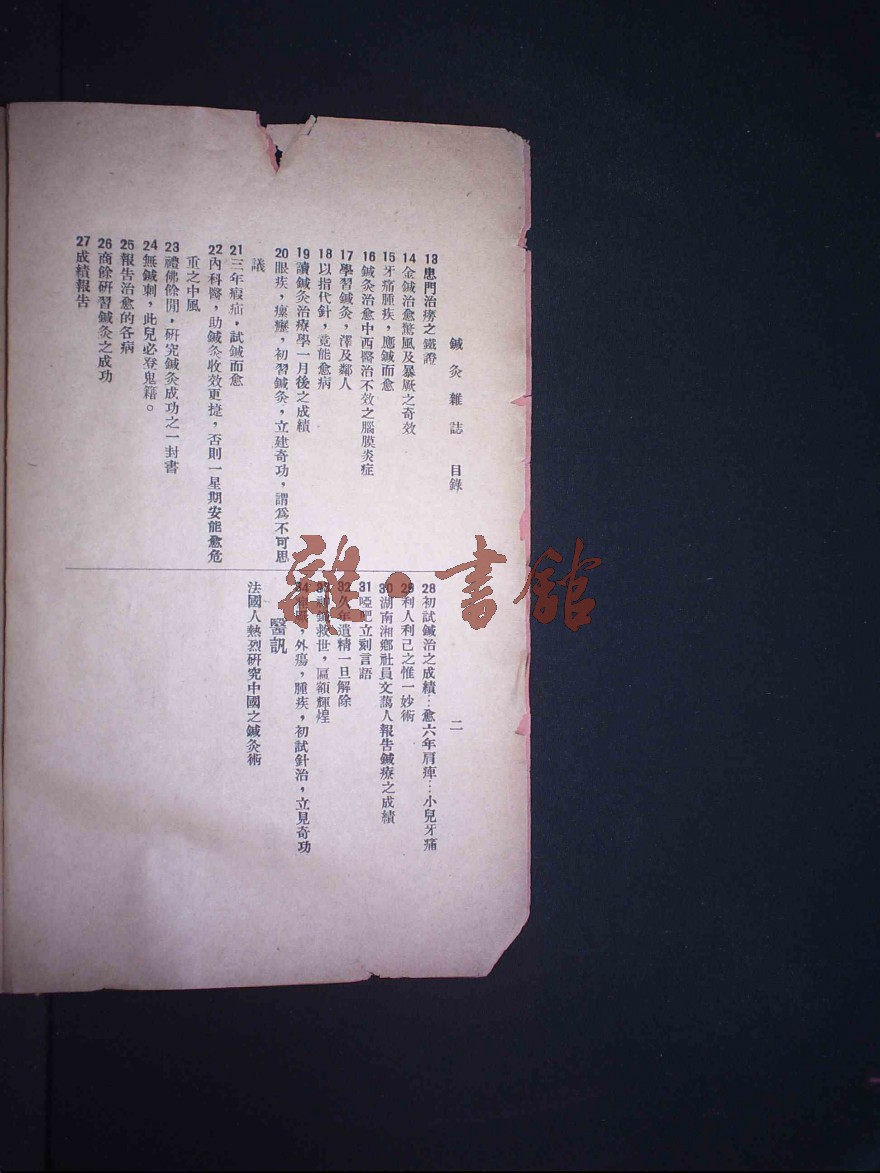 鍼灸雜誌 目錄
二
13 患門治癆之鐵證
14 金鍼治愈驚風及暴厥之奇效
15 牙痛腫疾，應鍼而愈
16 鍼灸治愈中西醫治不效之腦膜炎症
17 學習鍼灸，澤及鄰人
18 以指代針，竟能愈病
19 讀鍼灸治療學一月後之成績
20 眼疾，瘰癧，初習鍼灸，立建奇功，謂為不可思
議
21 三年瘕疝，試鍼而愈
22 內科醫，助鍼灸收效更捷，否則一星期安能愈危
重之中風
23 禮佛餘閒，研究鍼灸成功之一封書
24 無鍼刺，此兒必登鬼籍。
25 報告治愈的各病
26 商餘研習鍼灸之成功
27 成績報告
28 初試鍼治之成績…愈六年肩痺…小兒牙痛
29 利人利己之惟一妙術
30 湖南湘鄉社員文藹人報告鍼療之成績
31 啞吧立刻言語
32 久年遺精一旦解除
33 鍼救世，匾額輝煌
34 外瘍，腫疾，初試針治，立見奇功
醫訊
法國人熱烈研究中國之鍼灸術
雜·書館